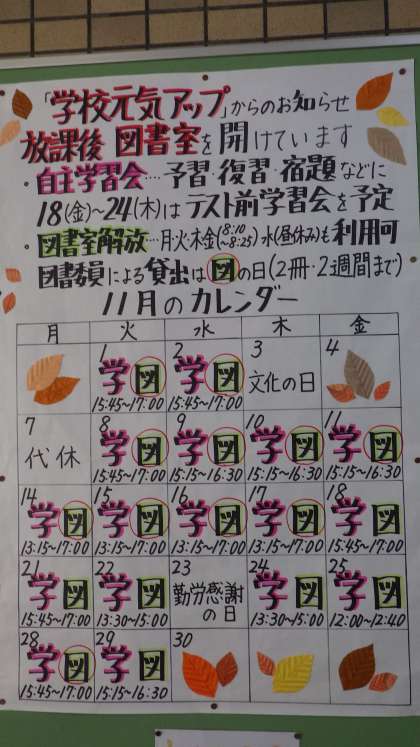 「学校元気アップ」からのお知らせ
放課後 図書室を開けています
・自主学習会…予習・復習・宿題などに
18(金)~24(木)はテスト前学習会を予定
・図書室解放…月火木金(8:10~8:25)水(昼休み)も利用可
図書委員による貸出は図の日(2冊・2週間まで)
11月のカレンダー
月 火 水 木 金
1 2 3 4
学図 学図 文化の日
15:45~17:00 15:45~17:00
7 8 9 10 11
代休 学図 学図 学図 学図
15:45~17:00 15:15~16:30 15:15~16:30 15:15~16:30
14 15 16 17 18
学図 学図 学図 学図 学図
13:15~17:00 13:15~17:00 13:15~17:00 13:15~17:00 15:45~17:00
21 22 23 24 25
学図 学図 勤労感謝の日 学図 学図
15:45~17:00 13:30~15:00 13:30~15:00 12:00~12:40
28 29 30
学図 学図
15:45~17:00 15:15~16:30